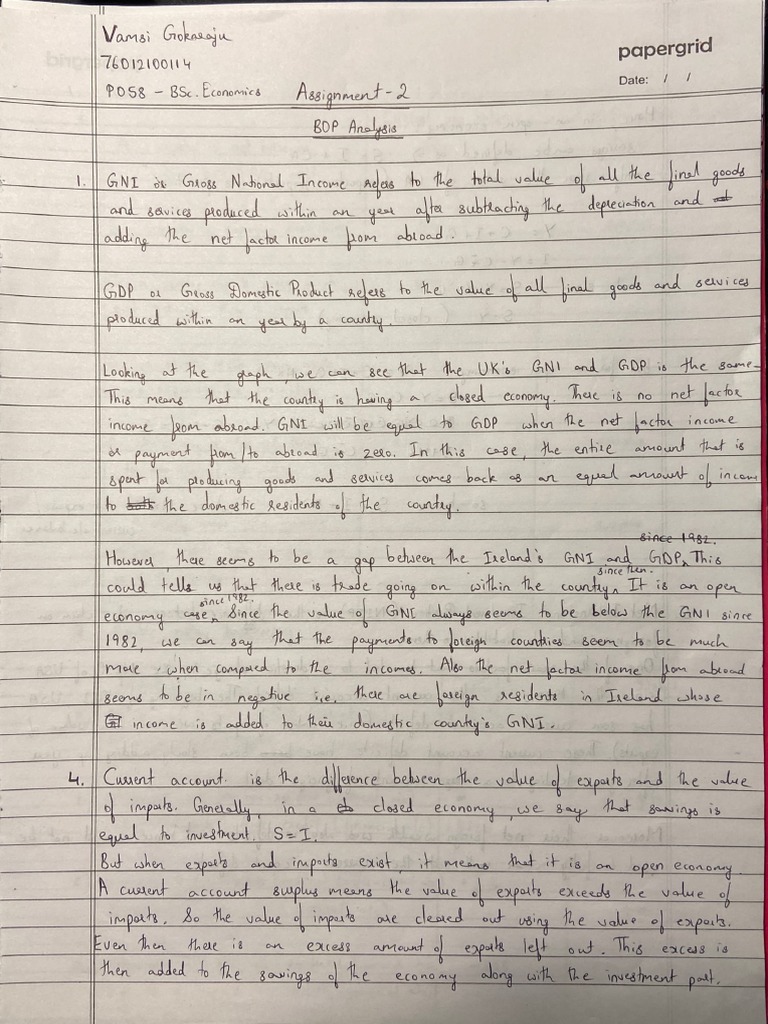 Vamsi Gokaraju
papergrid
76012100114
Date: / /
P058 - BSc. Economics Assignment - 2
BOP Analysis
1. GNI or Gross National Income refers to the total value of all the final goods
and services produced within an year after subtracting the depreciation and
adding the net factor income from abroad.
GDP or Gross Domestic Product refers to the value of all final goods and services
produced within an year by a country.
Looking at the graph, we can see that the UK's GNI and GDP is the same.
This means that the country is having a closed economy. There is no net factor
income from abroad. GNI will be equal to GDP when the net factor income
or payment from/to abroad is zero. In this case, the entire amount that is
spent for producing goods and services comes back as an equal amount of income
to the domestic residents of the country.
since 1982.
However, there seems to be a gap between the Ireland's GNI and GDP. This
since then.
could tells us that there is trade going on within the country. It is an open
since 1982.
economy case. Since the value of GNI always seems to be below the GNI since
1982, we can say that the payments to foreign countries seem to be much
more when compared to the incomes. Also the net factor income from abroad
seems to be in negative i.e, there are foreign residents in Ireland whose
income is added to their domestic country's GNI.
4. Current account is the difference between the value of exports and the value
of imports. Generally, in a closed economy, we say that savings is
equal to investment, S=I.
But when exports and imports exist, it means that it is an open economy.
A current account surplus means the value of exports exceeds the value of
imports. So the value of imports are cleared out using the value of exports.
Even then there is an excess amount of exports left out. This excess is
then added to the savings of the economy along with the investment part.